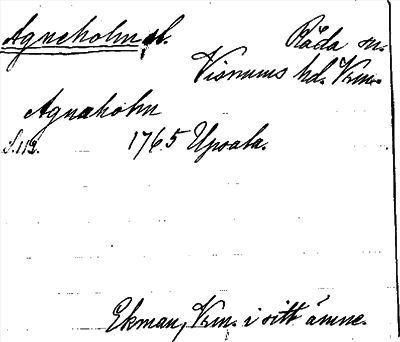 Agneholm sl. Råda sn.
Visnums hd. Vrm.
Agnaholm
S. 112. 1765 Upsala.
Ekman, Vrm. i sitt ämne.